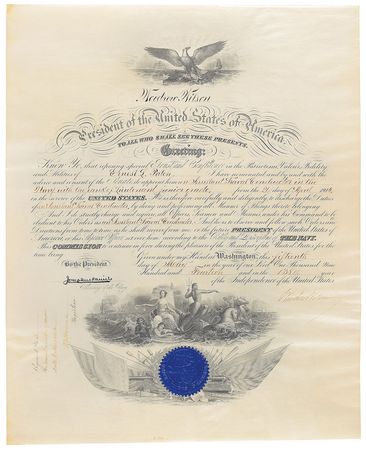 Woodrow Wilson
President of the United States of America.
TO ALL WHO SHALL SEE THESE PRESENTS,
Greeting:
Know Ye, that reposing special Trust and Confidence in the Patriotism, Valour, Fidelity
and Abilities of Ernest G. I have nominated and by and with the
advice and consent of the Senate do appoint him Assistant Naval Constructor in the
Navy with the rank of Lieutenant, junior grade, from the
in the service of the UNITED STATES. He is therefore carefully and diligently to discharge the Duties
of Assistant Naval Constructor, by doing and performing all Manner of Things thereto belonging.
And I do strictly charge and require all Officers, Seamen and Marines under his Command to be
obedient to his Orders as Assistant Naval Constructor. And he is to observe and follow such Orders and
Directions from time to time as he shall receive from me, or the future PRESIDENT of the United States of
America
THE NAVY.
This COMMISSION to continue in force during the pleasure of the President of the United States for the
time being.
Given under my Hand at Washington, this
By the President:
day of in the year of our Lord One Thousand Nine
Hundred and and in the
Josephus Daniels
of the Independence of the United States.
Secretary of the Navy.
Woodrow Wilson